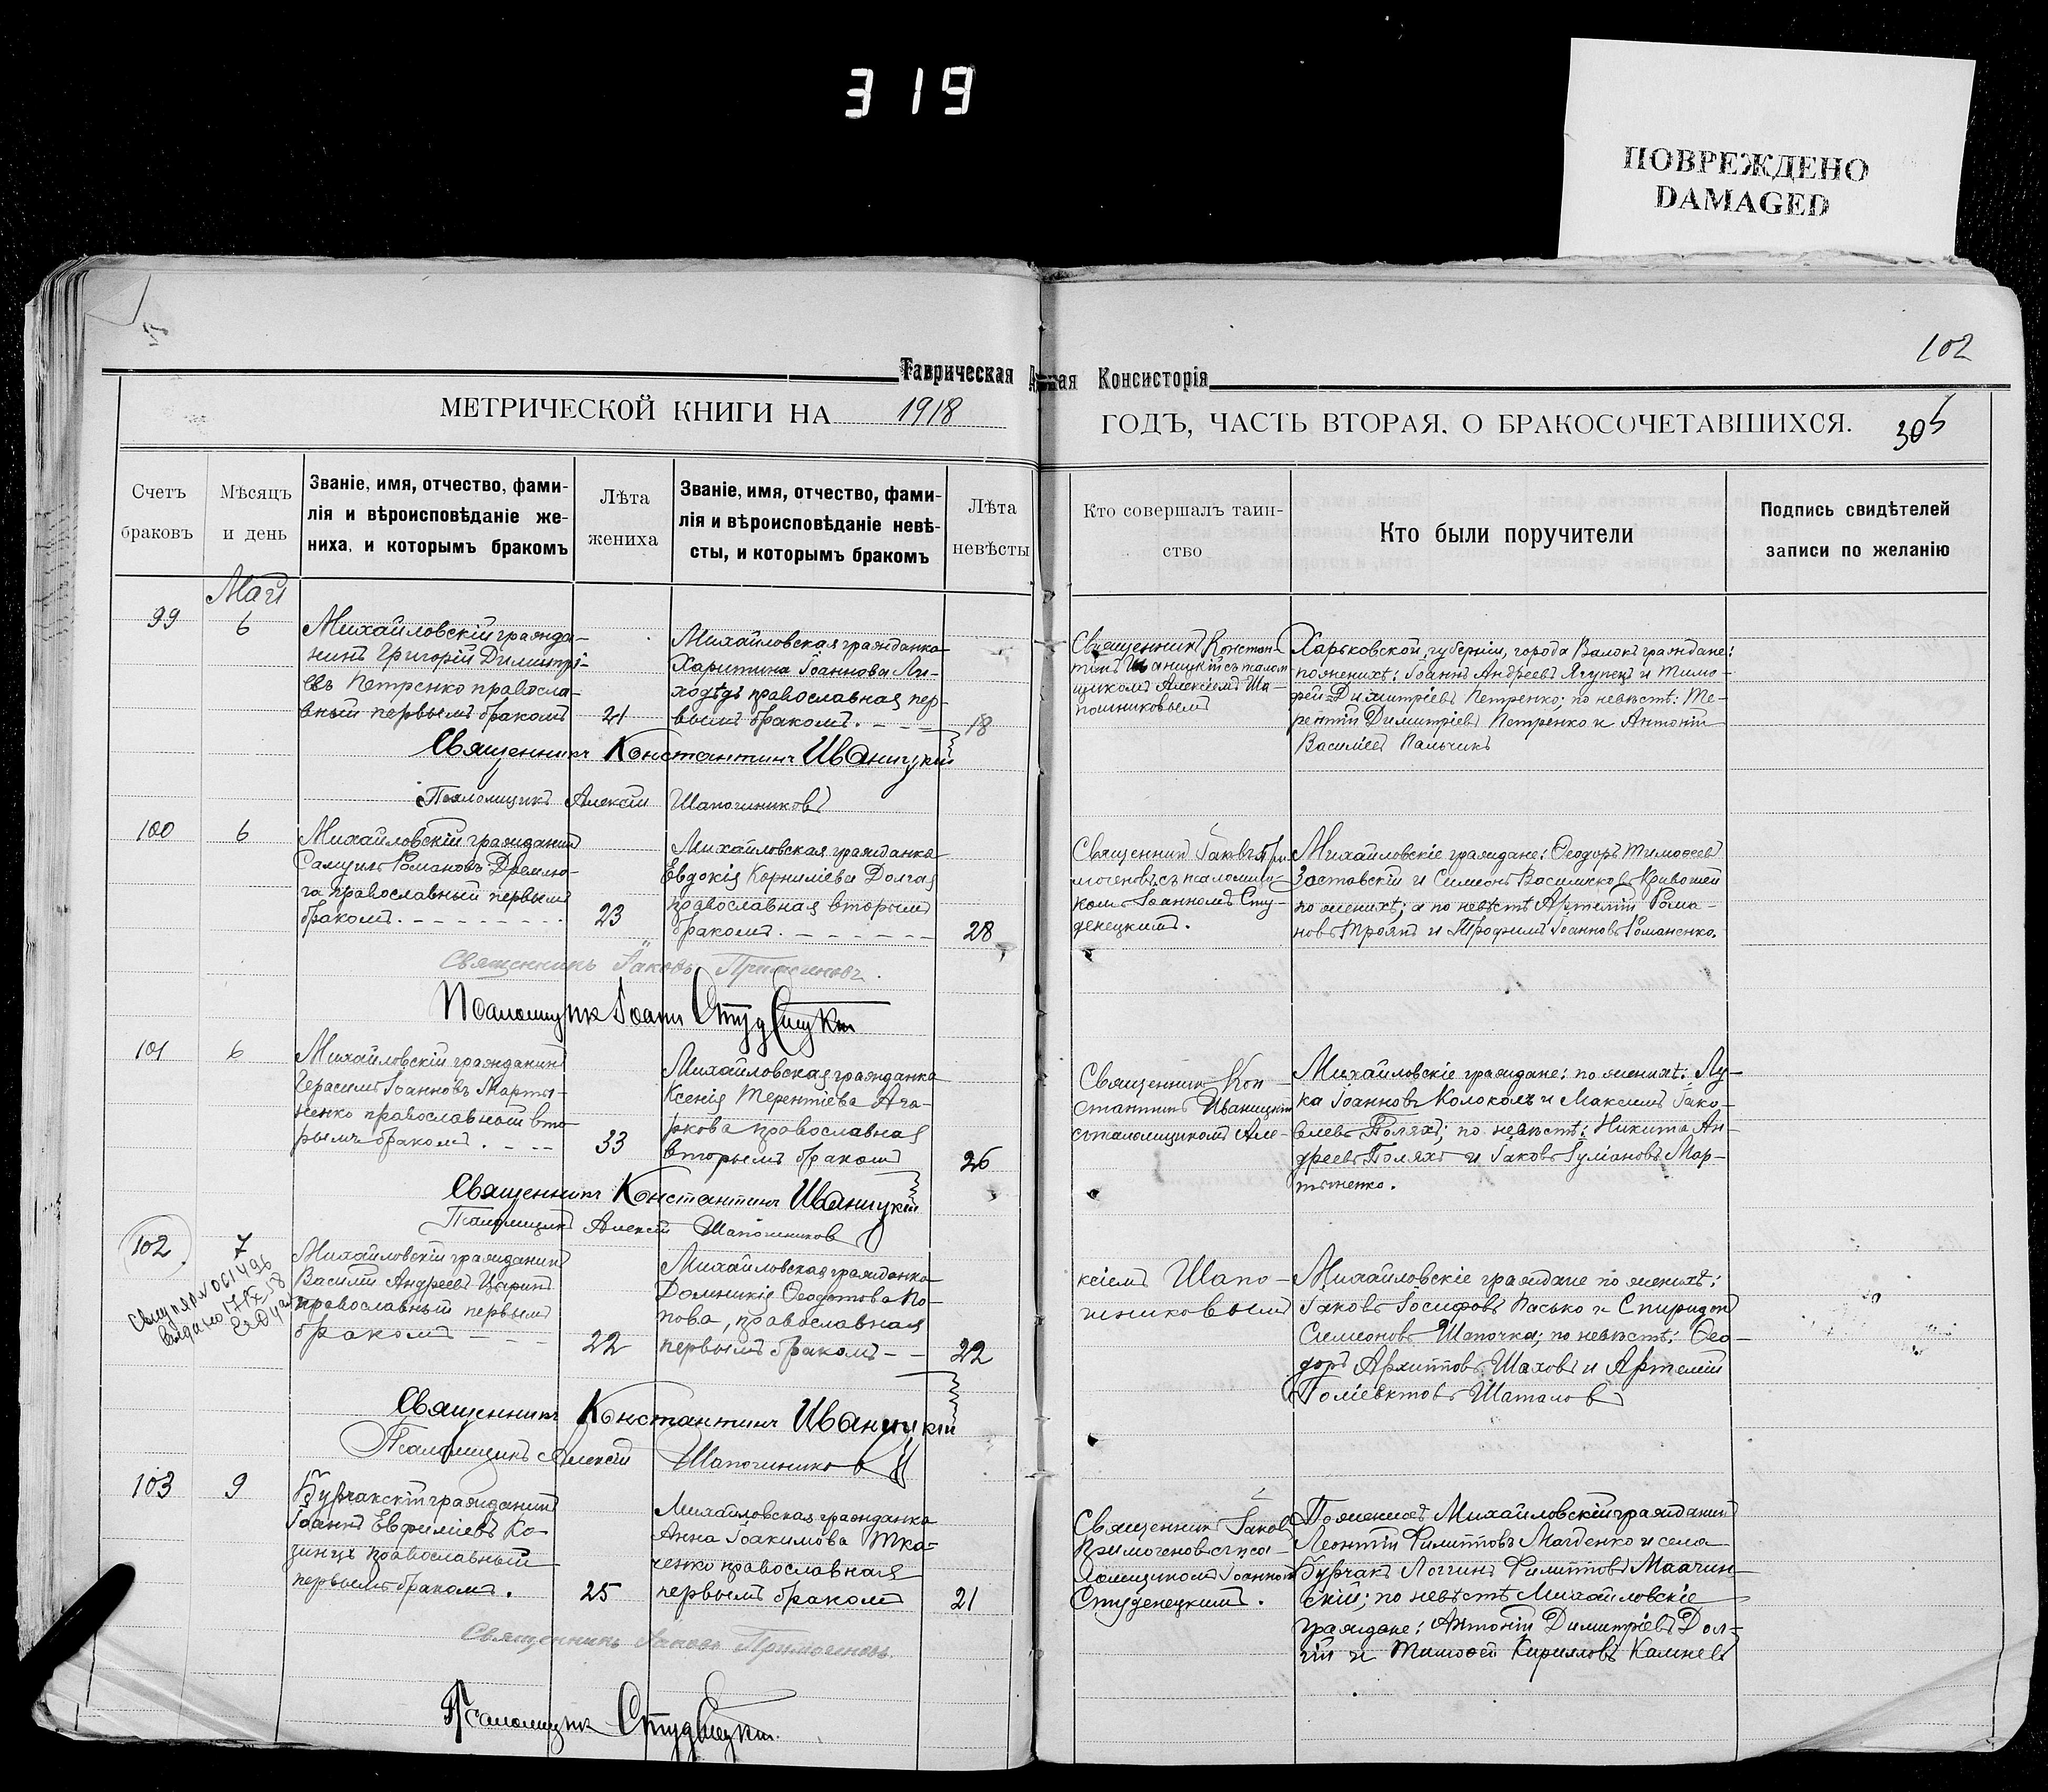 319
ПОВРЕЖДЕНО
DAMAGED
102
Таврическая
ная Консисторія
МЕТРИЧЕСКОЙ КНИГИ НА 1918
ГОДЪ, ЧАСТЬ ВТОРАЯ, О БРАКОСОЧЕТАВШИХСЯ.
305
Счетъ
браковъ
Мѣсяцъ
и день
Званіе, имя, отчество, фами-
лія и вѣроисповѣданіе же-
ниха, и которымъ бракомъ
Лѣта
жениха
Званіе, имя, отчество, фами-
лія и вѣроисповѣданіе невѣ-
сты, и которымъ бракомъ
Лѣта
невѣсты
Кто совершалъ таин-
ство
Кто были поручители
Подпись свидѣтелей
записи по желанію
Май
99
6
Михайловскій гражда-
нинъ Григорій Димитрі-
евъ Петренко правосла-
вный первымъ бракомъ
21
Михайловская гражданка
Харитина Іоаннова Ли-
ходѣдъ православная пер-
вымъ бракомъ.
18
Священникъ Констан-
тинъ Иваницкій съ псалом
щикомъ Алексіемъ Ша-
пошниковымъ
Харьковской губерніи, города Валокъ граждане:
по женихѣ: Іоаннъ Андреевъ Ягупец и Тимо-
фей Димитріевъ Петренко; по невѣстѣ: Те-
рентій Димитріевъ Петренко и Антоній
Василіев Пальчикъ
Священникъ Константинъ Иваницкій
Псаломщикъ Алексій Шапошниковъ
100
6
Михайловскій гражданинъ
Самуилъ Романовъ Дремлю-
га православный первымъ
бракомъ.
23
Михайловская гражданка
Евдокія Корниліева Долгая
православная вторымъ
бракомъ.
28
Священникъ Іаковъ При
моченовъ съ псаломщи-
комъ Іоанномъ Сту-
денецкимъ.
Михайловскіе граждане: Ѳеодоръ Тимоѳеевъ
Заставскій и Симеонъ Васильевъ Кривошей
по женихѣ; а по невѣстѣ Артемій Рома-
новъ Троянъ и Трофимъ Іоанновъ Романенко.
Священникъ Іаковъ Примоченовъ.
Псаломщикъ Іоаннъ Студенецкій
101
6
Михайловскій гражданинъ
Герасимъ Іоанновъ Марты-
ненко православный вто-
рымъ бракомъ.
33
Михайловская гражданка
Ксенія Терентіева Ага-
ркова православная
вторымъ бракомъ
26
Священникъ Кон-
стантинъ Иваницкій
съ псаломщикомъ Але-
Михайловскіе граждане: по женихѣ: Лу-
ка Іоанновъ Колоколъ и Максимъ Іако-
влевъ Поляхъ; по невѣстѣ: Никита Ан-
дреевъ Поляхъ и Іаковъ Іуліановъ Мар-
тыненко.
Священникъ Константинъ Иваницкій
Псаломщикъ Алексій Шапошниковъ
102
7
Михайловскій гражданинъ
Василій Андреевъ Царинъ
православный первымъ
бракомъ
22
Михайловская гражданка
Домникія Ѳеодотова По-
пова, православная
первымъ бракомъ
22
ксіемъ Шапо-
шниковымъ
Михайловскіе граждане по женихѣ:
Іаковъ Іосифовъ Пасько и Спиридонъ
Симеоновъ Шапочка; по невѣстѣ: Ѳео-
доръ Архиповъ Шаховъ и Артемій
Поліевктовъ Шаталовъ
Священникъ Константинъ Иваницкій
Псаломщикъ Алексій Шапошниковъ
103
9
Бурчакскій гражданинъ
Іоаннъ Евфиміевъ Ко-
зинцъ православный
первымъ бракомъ.
25
Михайловская гражданка
Анна Іоакимова Тка-
ченко православная
первымъ бракомъ
21
Священникъ Іаковъ
Примоченовъ съ пса-
ломщикомъ Іоанномъ
Студенецкимъ.
По женихѣ Михайловскій гражданинъ
Леонтій Филипповъ Магденко и села
Бурчакъ Логгинъ Филипповъ Маачин-
скій; по невѣстѣ Михайловскіе
граждане: Антоній Димитріевъ Дол-
гій и Тимоѳей Кирилловъ Камневъ
Священникъ Іаковъ Примоченовъ.
Псаломщикъ Студенецкій.